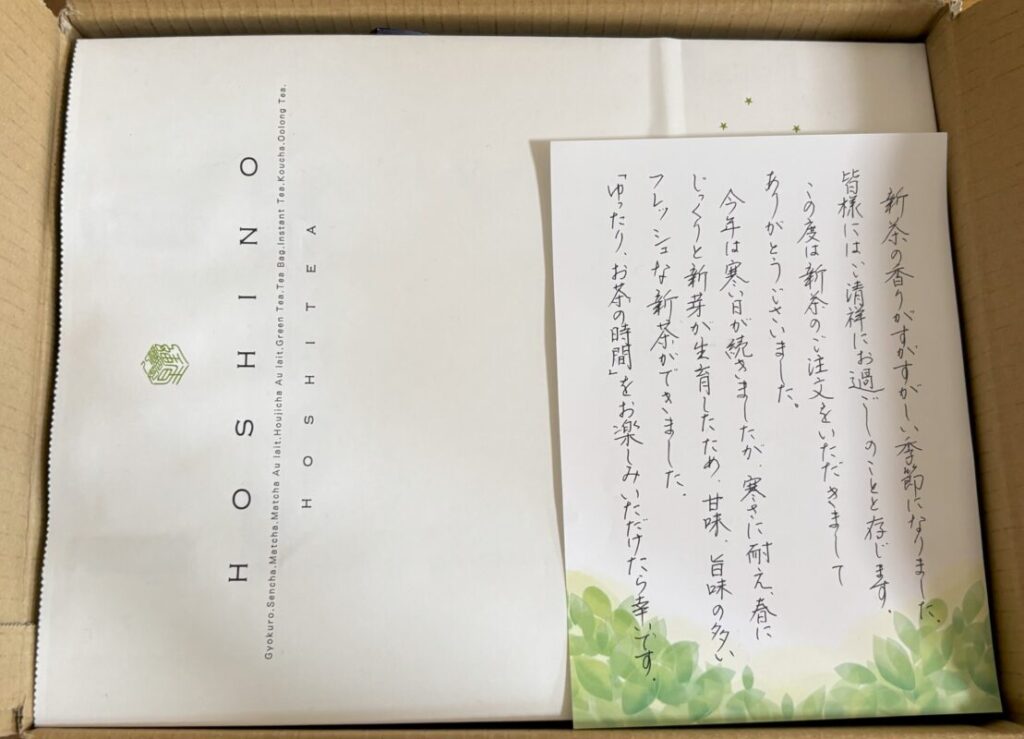 HOSHINO
Gyokuro.Sencha.Matcha.Matcha Au lait.Houjicha Au lait.Green Tea.Tea Bag.Instant Tea.Koucha.Oolong Tea.
HOSHITEA
新茶の香りがすがすがしい季節になりました。
皆様にはご清祥にお過ごしのことと存じます。
この度は新茶のご注文をいただきまして
ありがとうございました。
今年は寒い日が続きましたが、寒さに耐え、春に
じっくりと新芽が生育したため、甘味、旨味の多い
フレッシュな新茶ができました。
「ゆったり、お茶の時間」をお楽しみいただけたら幸いです。